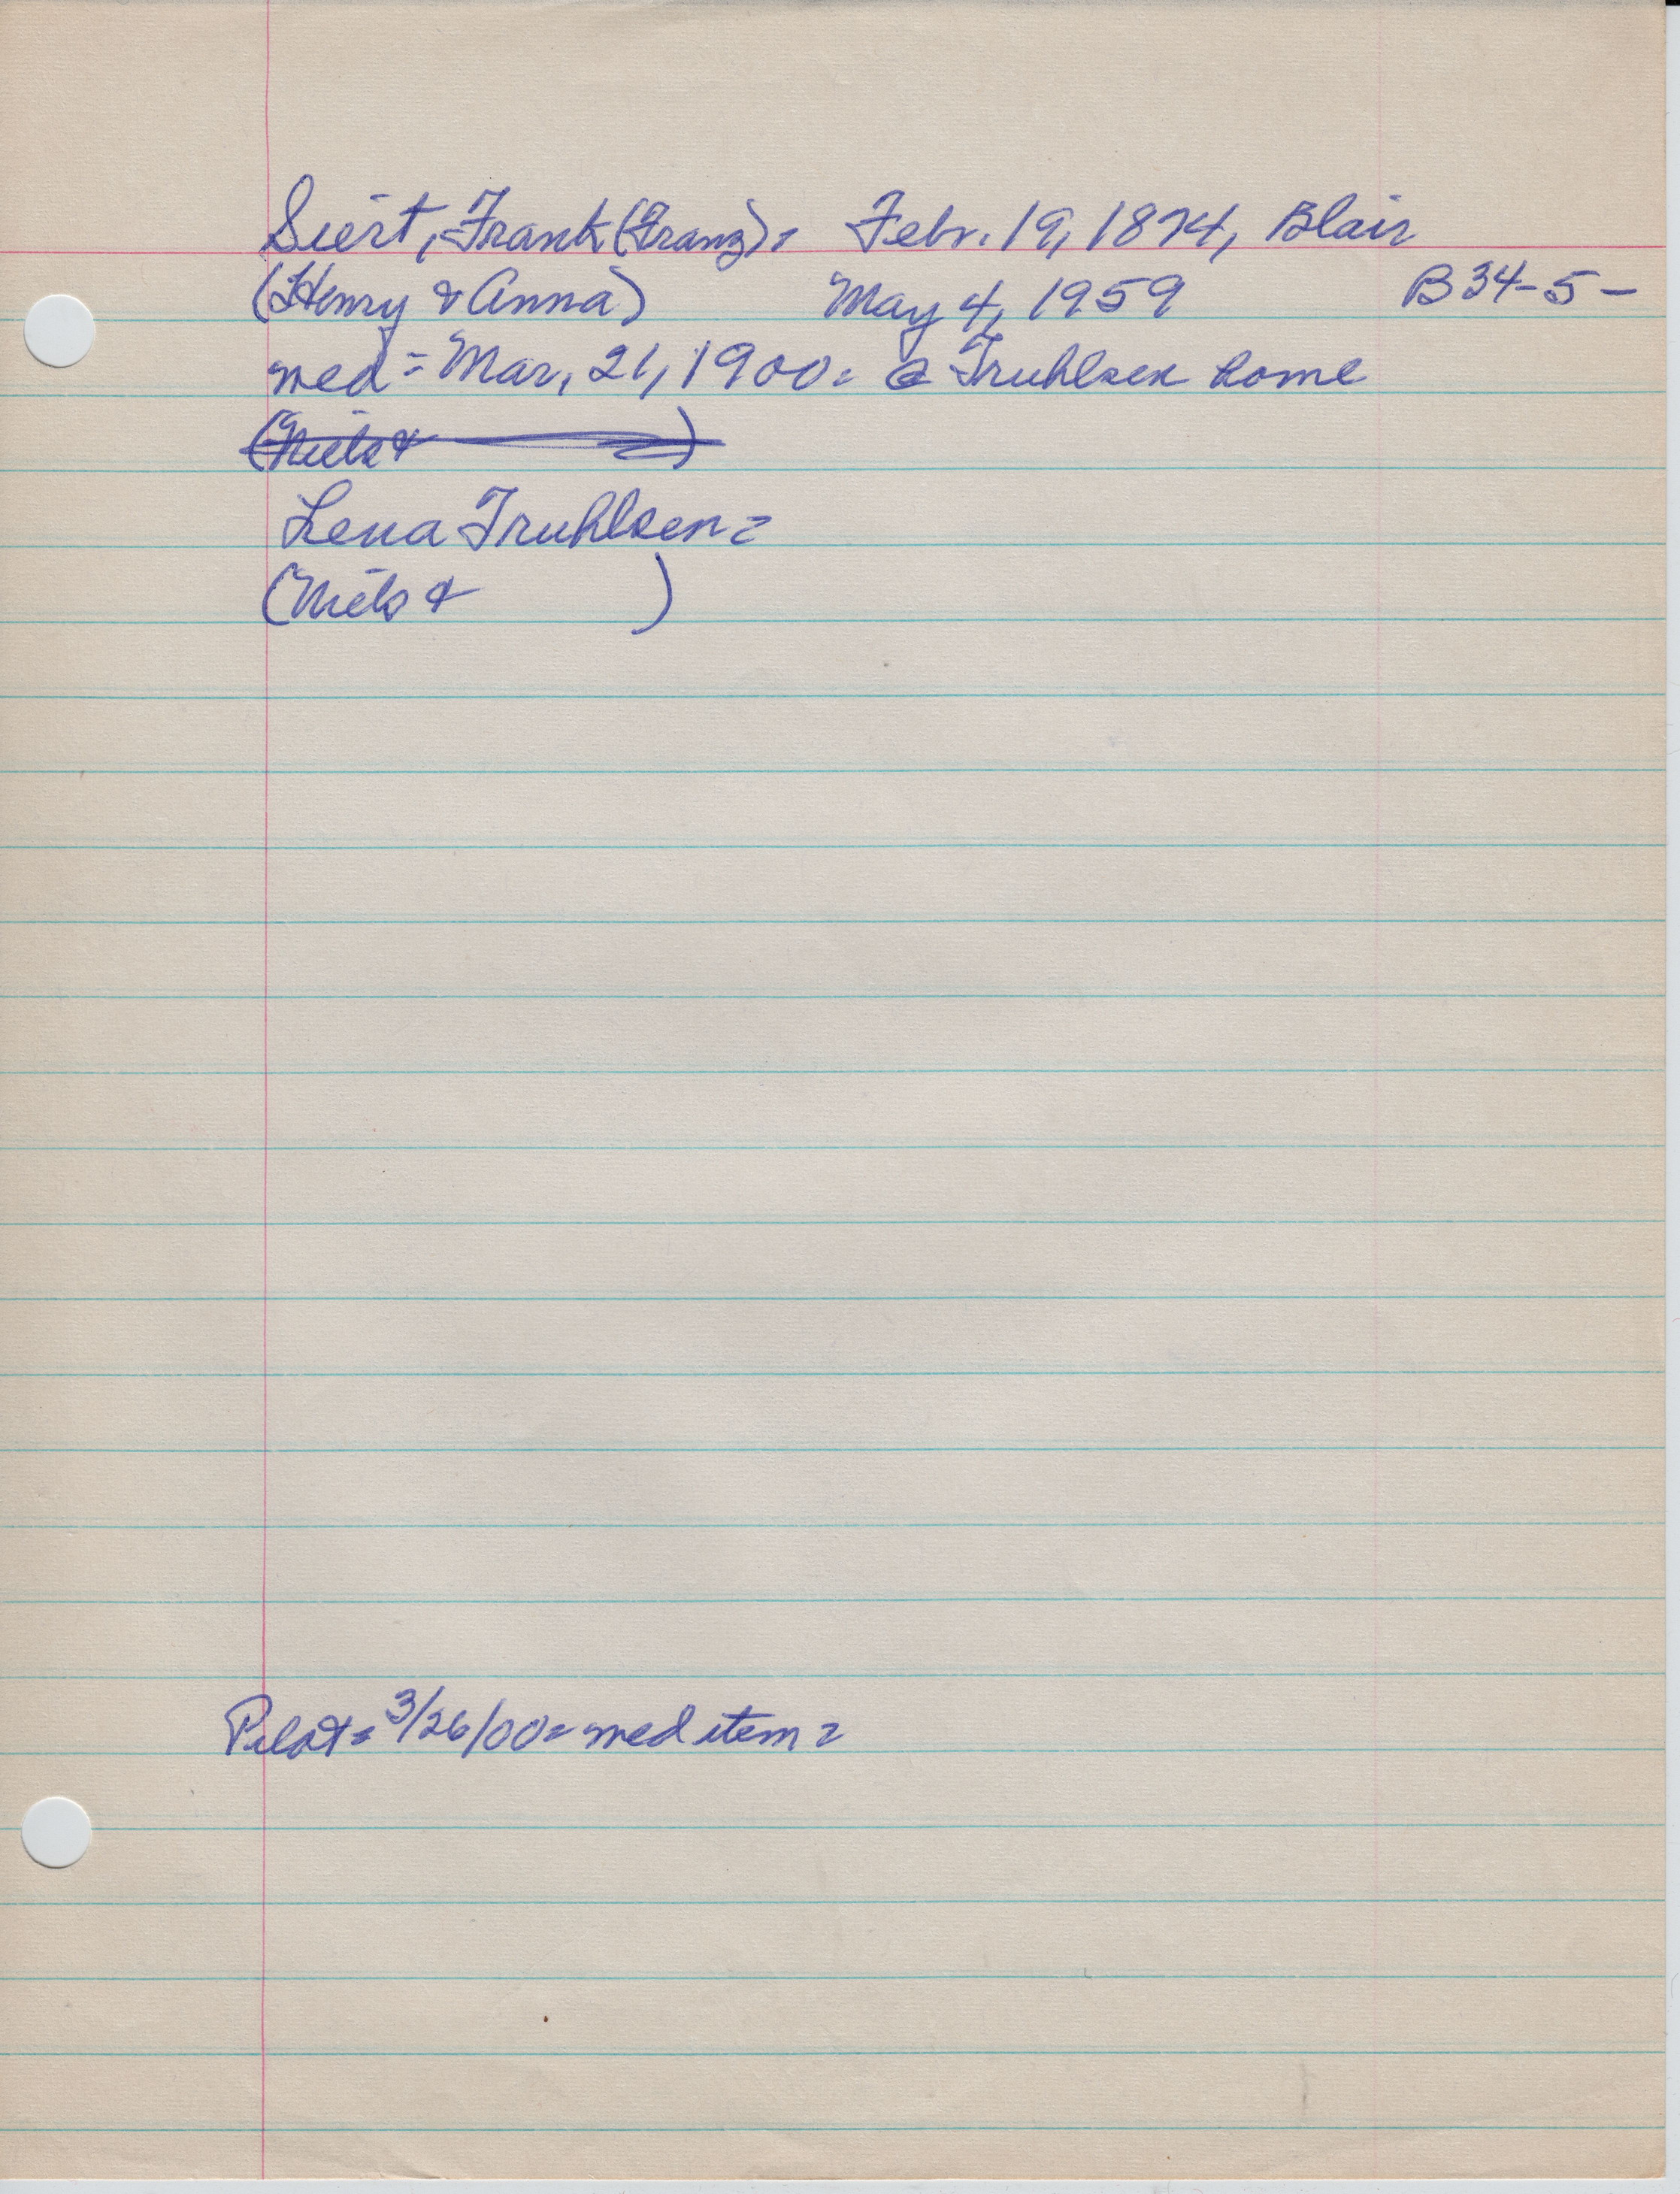 Siert, Frank (Franz) = Febr. 19, 1874, Blair
(Henry & Anna) May 4, 1959 B34-5-
med = Mar. 21, 1900 = @ Truhlsen home
(Niels & )
Lena Truhlsen =
(Niels & )
Pilot = 3/26/00 = med item =